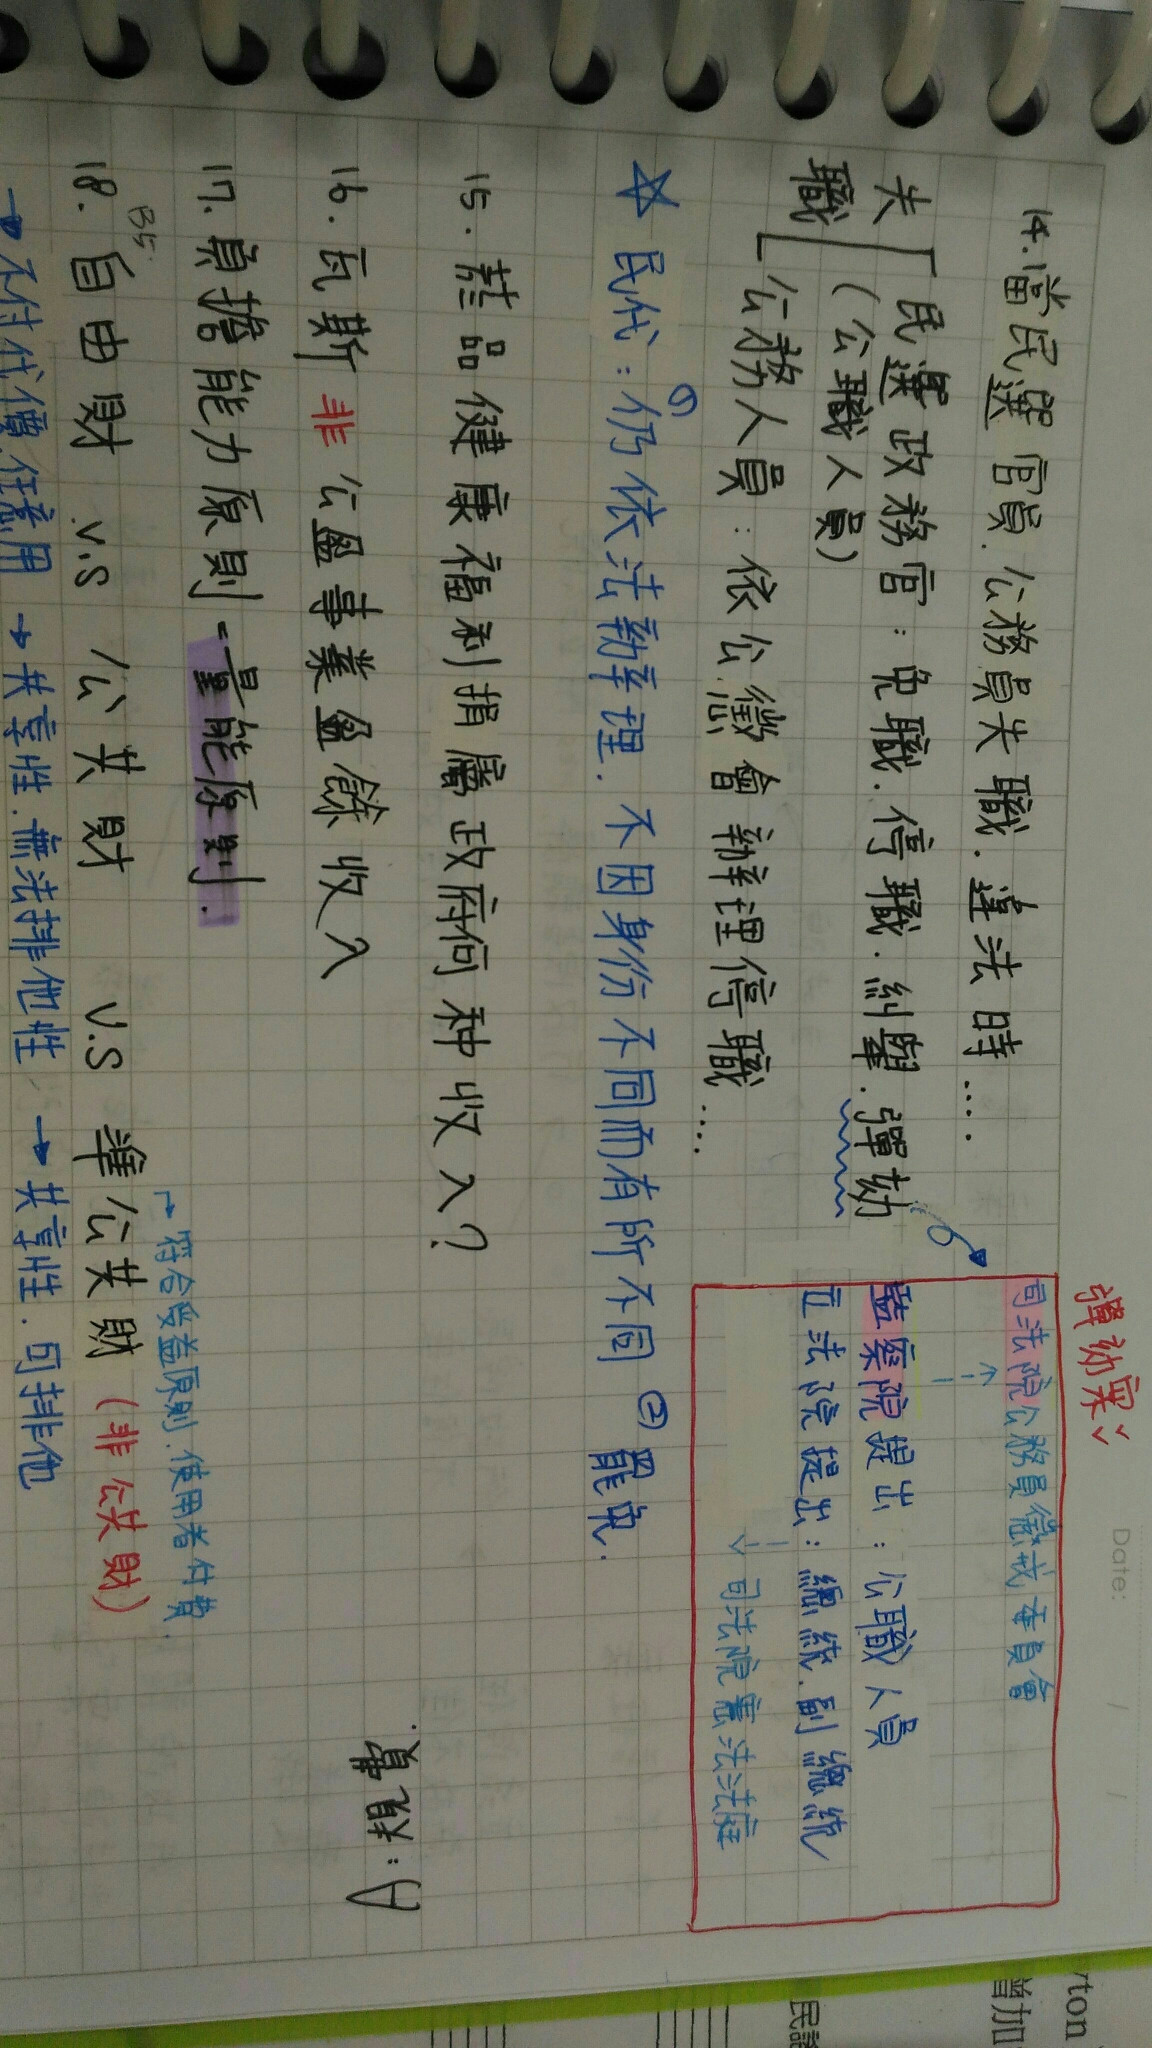 Date: / /
14. 當民選官員、公務員失職、違法時....
失職
民選政務官：免職、停職、糾舉、彈劾
(公職人員)
公務人員：依公懲會辦理停職....
彈劾案
司法院公務員懲戒委員會
監察院提出：公職人員
立法院提出：總統、副總統
司法院憲法法庭
☆ 民代：①仍依法辦理、不因身份不同而有所不同 ②罷免.
15. 菸品健康福利捐屬政府何種收入?
A：規費.
16. 瓦斯非公盈事業盈餘收入
17. 負擔能力原則=量能原則.
B5.
→符合受益原則.使用者付費.
18. 自由財 v.s 公共財 v.s 準公共財 (非公共財)
→不付代價.任意用 →共享性.無法排他性 →共享性.可排他
rton
曾加
民說